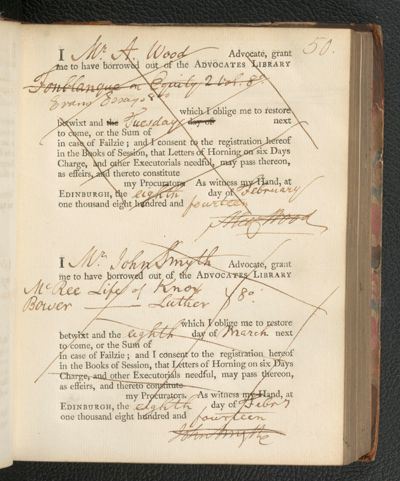 50.
I Mr. A. Wood Advocate, grant
me to have borrowed out of the ADVOCATES LIBRARY
Fonblanque on Equity 2 vol. 8º.
Evans Essays 8vo
which I oblige me to restore
betwixt and the Tuesday day of next
to come, or the Sum of
in case of Failzie; and I consent to the registration hereof
in the Books of Session, that Letters of Horning on six Days
Charge, and other Executorials needful, may pass thereon,
as effeirs, and thereto constitute
my Procurators As witness my Hand, at
EDINBURGH, the eighth day of February
one thousand eight hundred and fourteen
Alex Wood
I Mr. John Smyth Advocate, grant
me to have borrowed out of the ADVOCATES LIBRARY
McRee Life of Knox
Bower —— Luther 8º.
which I oblige me to restore
betwixt and the eighth day of March next
to come, or the Sum of
in case of Failzie; and I consent to the registration hereof
in the Books of Session, that Letters of Horning on six Days
Charge, and other Executorials needful, may pass thereon,
as effeirs, and thereto constitute
my Procurators As witness my Hand, at
EDINBURGH, the eighth day of Febry
one thousand eight hundred and fourteen
John Smythe